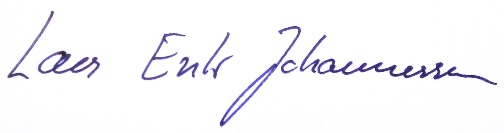 Lars Erik Johannessen